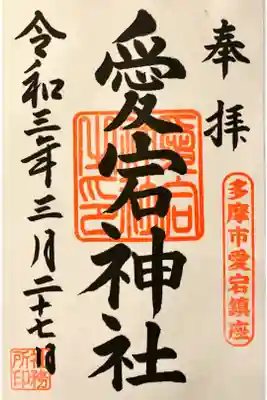 奉拝
多摩市愛宕鎮座
愛宕神社
令和三年三月二十七日